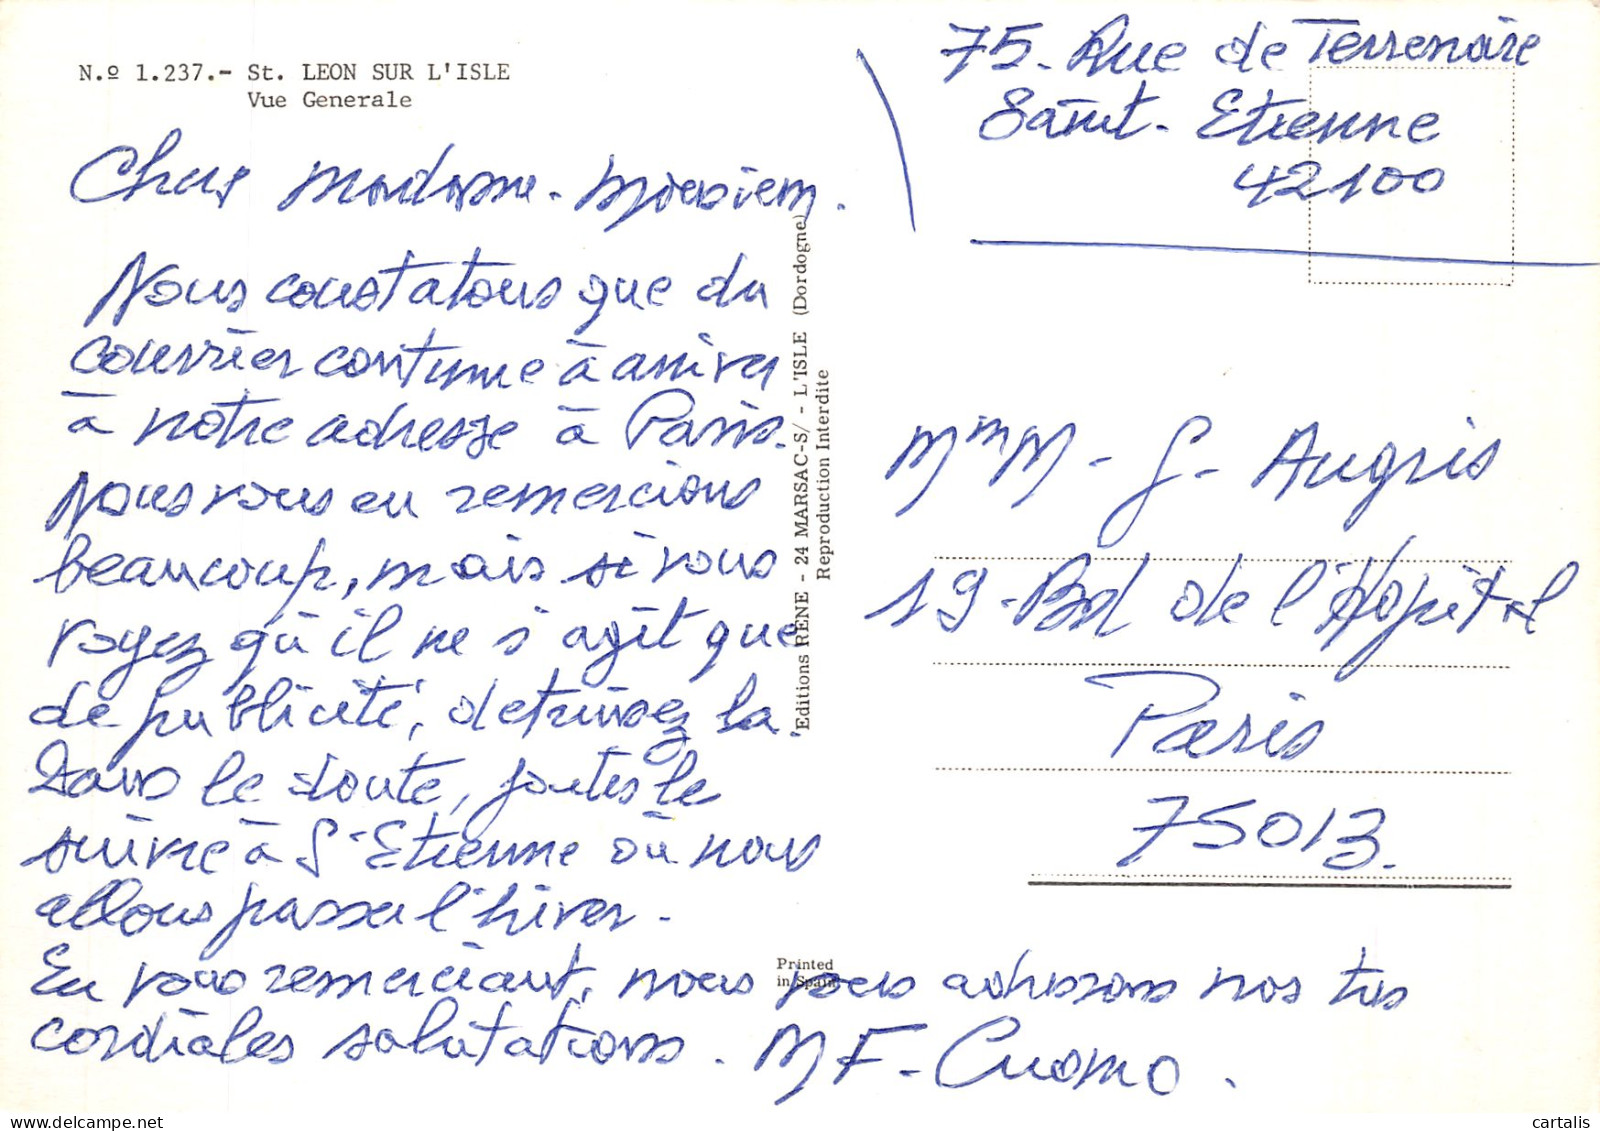 N.º 1.237.- St. LEON SUR L'ISLE
Vue Generale
75. Rue de Terrenoire
Saint-Etienne
42100
Chers Madame-Monsieur.
Nous constatons que du
courrier continue à arriver
à notre adresse à Paris.
Nous vous en remercions
beaucoup, mais si vous
voyez qu'il ne s'agit que
de publicité, detruisez la.
Dans le doute, faites le
suivre à St-Etienne où nous
allons passer l'hiver.
En vous remerciant, nous vous adressons nos très
cordiales salutations. M F. Cuomo.
Editions RENE - 24 MARSAC-S/ - L'ISLE (Dordogne)
Reproduction Interdite
Printed
in Spain
Mme M - G - Augris
19 - Bd de l'Hopital
Paris
75013.
cartalis